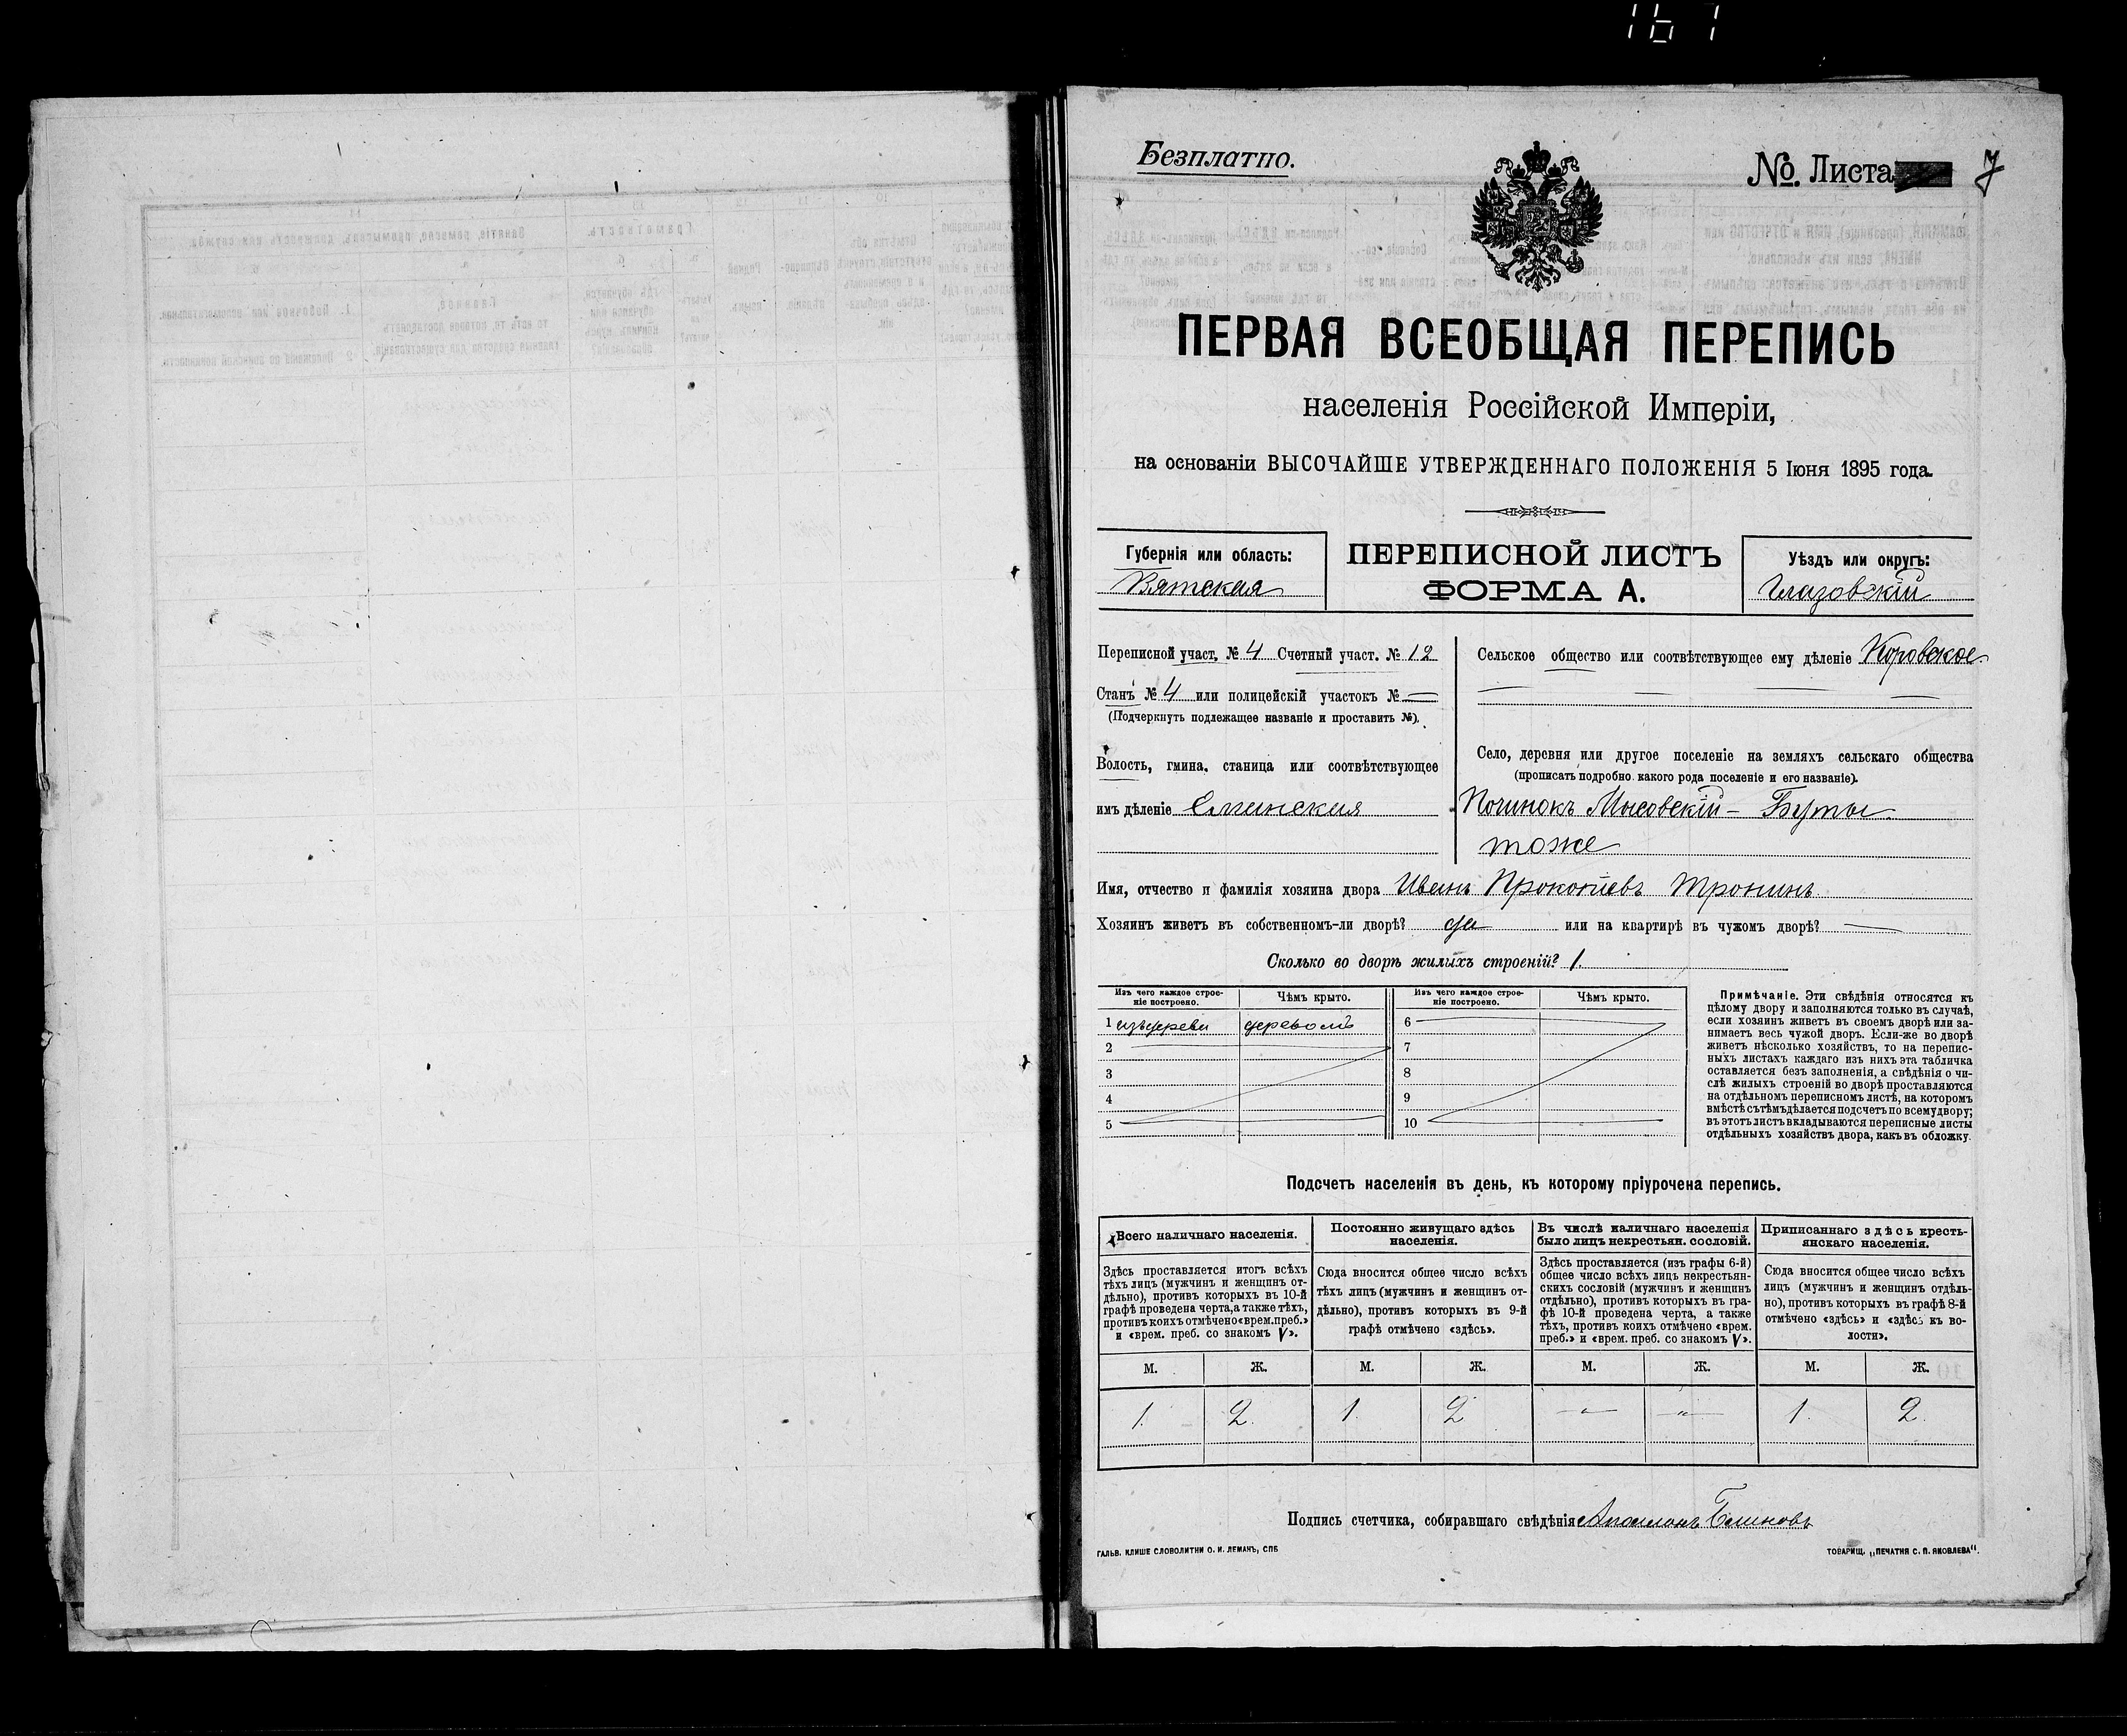 161
Безплатно.
№ Листа 7
ПЕРВАЯ ВСЕОБЩАЯ ПЕРЕПИСЬ
населенія Россійской Имперіи,
на основаніи ВЫСОЧАЙШЕ УТВЕРЖДЕННАГО ПОЛОЖЕНІЯ 5 Іюня 1895 года.
Губернія или область:
Вятская
ПЕРЕПИСНОЙ ЛИСТЪ
ФОРМА А.
Уѣздъ или округъ:
Глазовскій
Переписной участ. № 4 Счетный участ. № 12
Станъ № 4 или полицейскій участокъ № —
(Подчеркнуть подлежащее названіе и проставить №).
Волость, гмина, станица или соотвѣтствующее
имъ дѣленіе
Сельское общество или соотвѣтствующее ему дѣленіе Коровское
Село, деревня или другое поселеніе на земляхъ сельскаго общества
(прописать подробно какого рода поселеніе и его названіе).
Починокъ Мысовскій — Буты
тоже
Имя, отчество и фамилія хозяина двора Иванъ Прокопіевъ Тронинъ
Хозяинъ живетъ въ собственномъ-ли дворѣ? да или на квартирѣ въ чужомъ дворѣ? —
Сколько во дворѣ жилыхъ строеній? 1.
Изъ чего каждое строе-
ніе построено.
Чѣмъ крыто.
Изъ чего каждое строе-
ніе построено.
Чѣмъ крыто.
1 изъ дерева деревомъ 6
2 7
3 8
4 9
5 10
Примѣчаніе. Эти свѣдѣнія относятся къ
цѣлому двору и заполняются только въ случаѣ,
если хозяинъ живетъ въ своемъ дворѣ или за-
нимаетъ весь чужой дворъ. Если-же во дворѣ
живетъ нѣсколько хозяйствъ, то на перепис-
ныхъ листахъ каждаго изъ нихъ эта табличка
оставляется безъ заполненія, а свѣдѣнія о чи-
слѣ жилыхъ строеній во дворѣ проставляются
на отдѣльномъ переписномъ листѣ, на которомъ
вмѣстѣ съ тѣмъ дѣлается подсчетъ по всему двору;
въ этотъ листъ вкладываются переписные листы
отдѣльныхъ хозяйствъ двора, какъ въ обложку.
Подсчетъ населенія въ день, къ которому пріурочена перепись.
Всего наличнаго населенія.
Здѣсь проставляется итогъ всѣхъ
тѣхъ лицъ (мужчинъ и женщинъ от-
дѣльно), противъ которыхъ въ 10-й
графѣ проведена черта, а также тѣхъ,
противъ коихъ отмѣчено «врем. преб.»
и «врем. преб. со знакомъ V».
Постоянно живущаго здѣсь
населенія.
Сюда вносится общее число всѣхъ
тѣхъ лицъ (мужчинъ и женщинъ от-
дѣльно), противъ которыхъ въ 9-й
графѣ отмѣчено «здѣсь».
Въ числѣ наличнаго населенія
было лицъ некрестьян. сословій.
Здѣсь проставляется (изъ графы 6-й)
общее число всѣхъ лицъ некрестьян-
скихъ сословій (мужчинъ и женщинъ
отдѣльно), противъ которыхъ въ гра-
фѣ 10-й проведена черта, а также
тѣхъ, противъ коихъ отмѣчено «врем.
преб.» и «врем. преб. со знакомъ V».
Приписаннаго здѣсь кресть-
янскаго населенія.
Сюда вносится общее число всѣхъ
лицъ (мужчинъ и женщинъ отдѣль-
но), противъ которыхъ въ графѣ 8-й
отмѣчено «здѣсь» и «здѣсь къ во-
лости».
М. Ж. М. Ж. М. Ж. М. Ж.
1. 2. 1. 2 —"— —"— 1. 2.
Подпись счетчика, собиравшаго свѣдѣнія Аполлонъ
ГАЛЬВ. КЛИШЕ СЛОВОЛИТНИ О. И. ЛЕМАНЪ, СПБ
ТОВАРИЩ. „ПЕЧАТНЯ С. П. ЯКОВЛЕВА".